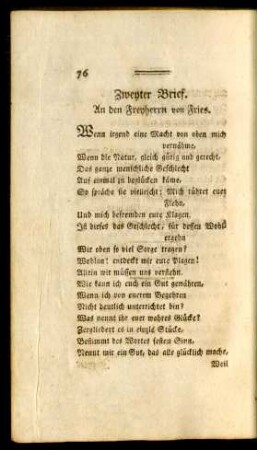 76
Zweyter Brief.
An den Freyherrn von Fries.
Wenn irgend eine Macht von oben mich
vernähme,
Wenn die Natur, gleich gütig und gerecht,
Das ganze menschliche Geschlecht
Auf einmal zu beglücken käme,
So spräche sie vielleicht; Mich rühret euer
Flehn,
Und mich befremden eure Klagen.
Ist dieses das Geschlecht, für dessen Wohl-
ergehn
Wir eben so viel Sorge tragen?
Wohlan! entdeckt mir eure Plagen!
Allein wir müssen uns verstehn.
Wie kann ich euch ein Gut gewähren,
Wenn ich von euerem Begehren
Nicht deutlich unterrichtet bin?
Was nennt ihr euer wahres Glücke?
Zergliedert es in einzle Stücke,
Bestimmt des Wortes festen Sinn,
Nennt mir ein Gut, das alle glücklich mache,
Weil